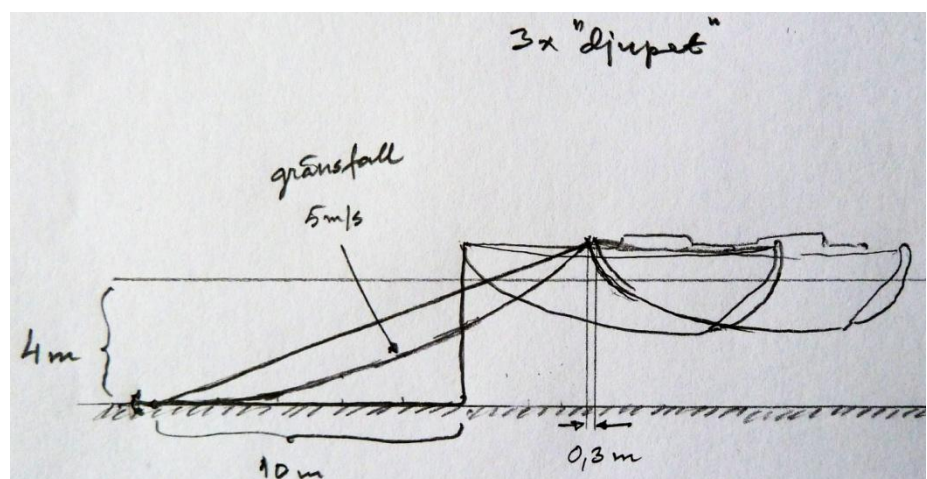 3x "djupet"
gränsfall
5m/s
4m
10m
0,3m